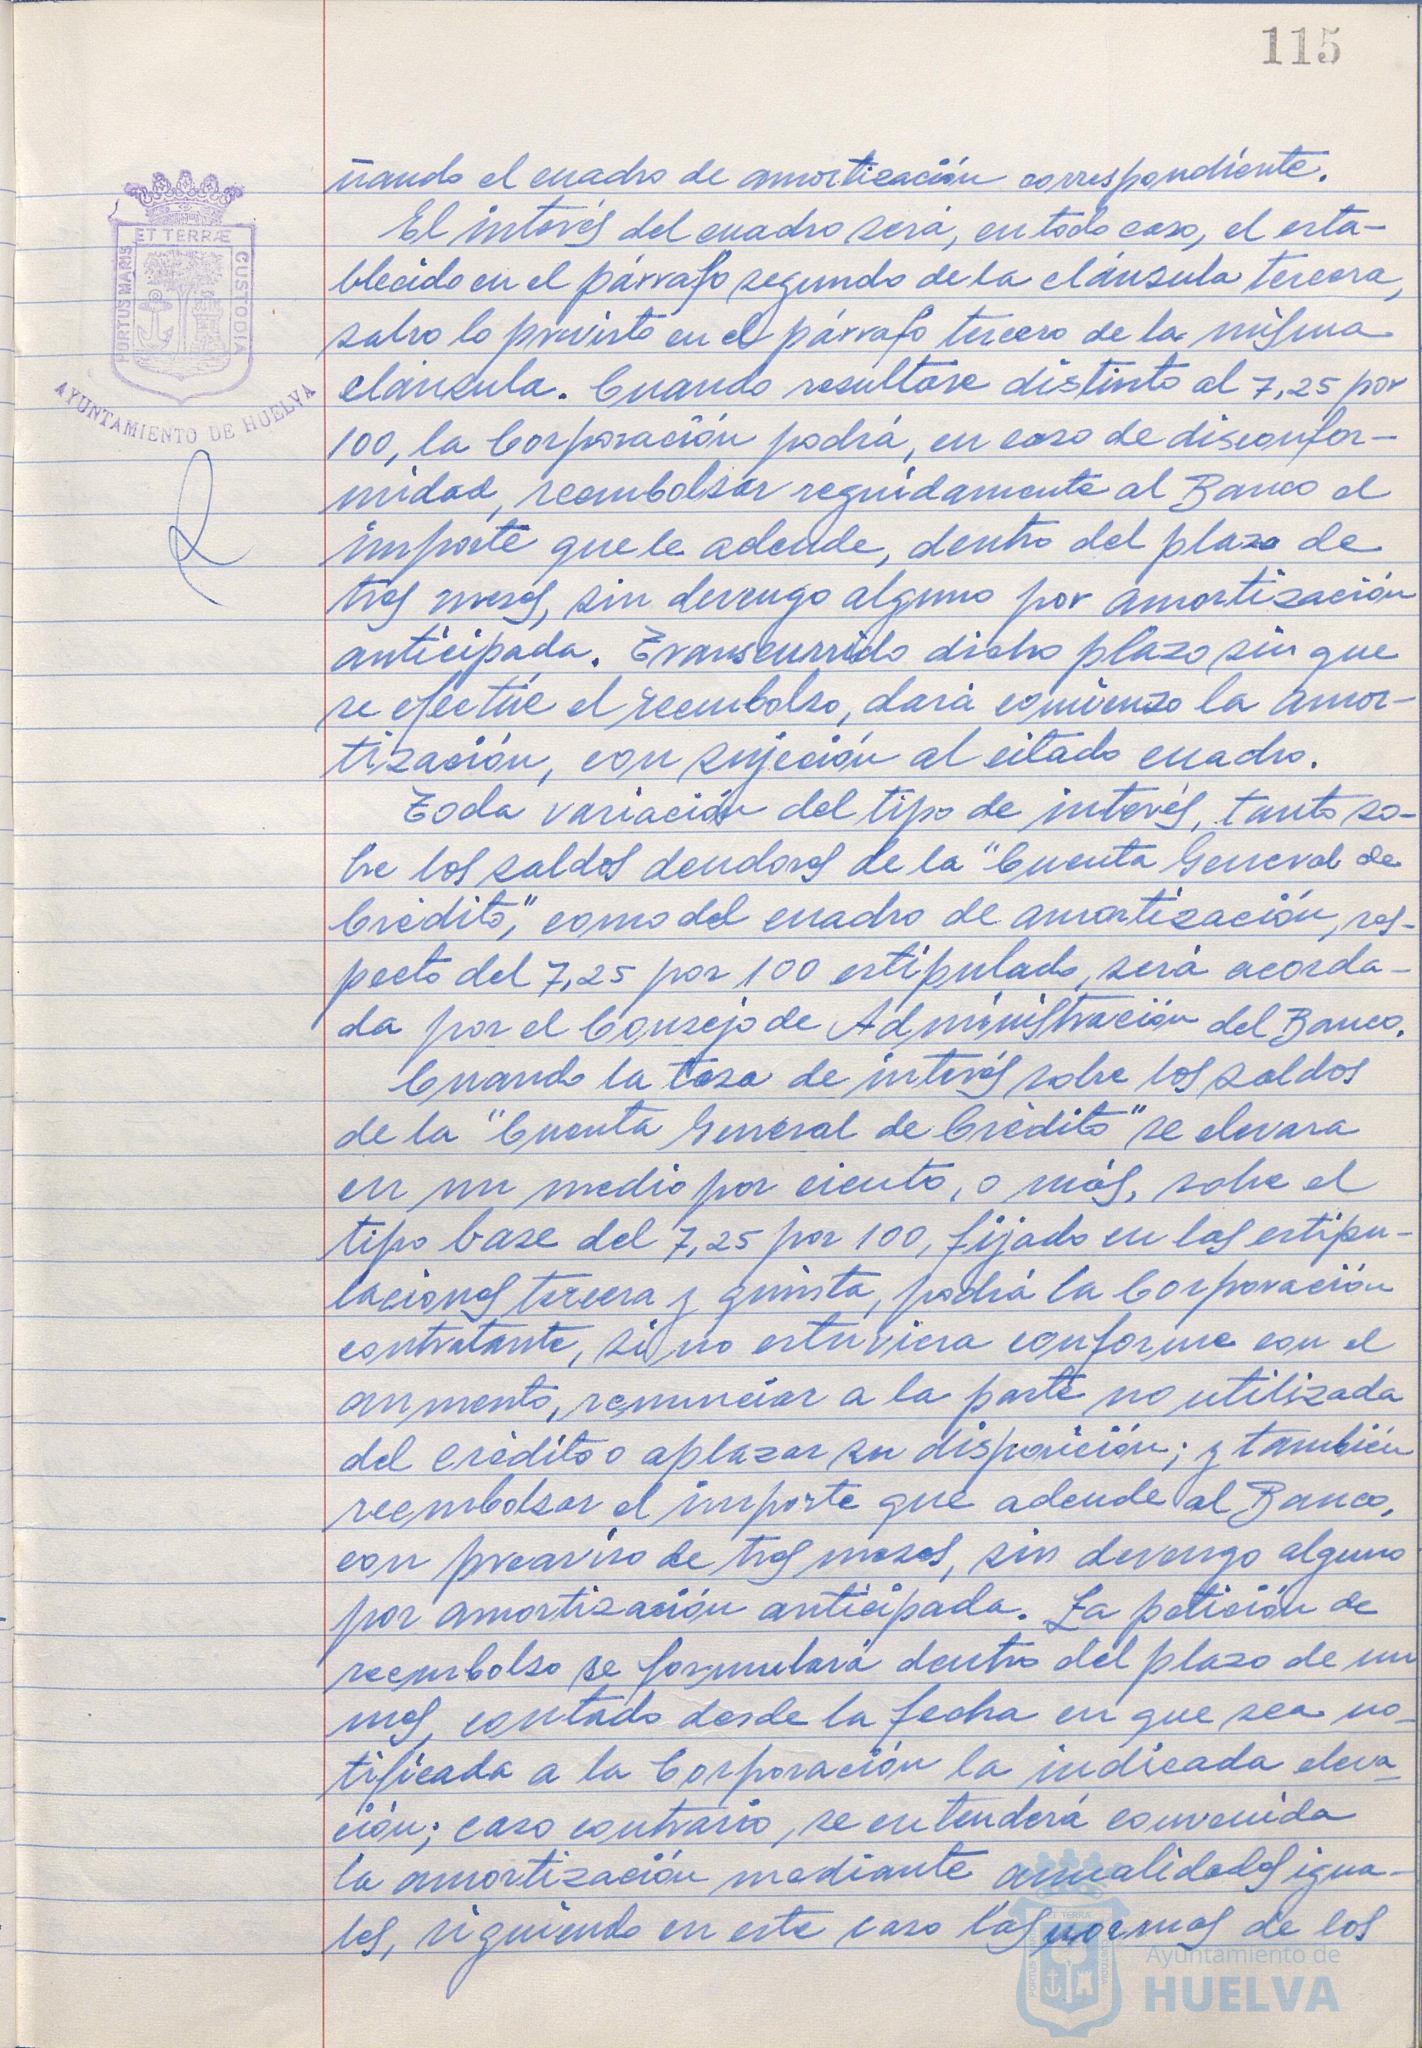 115
PORTUS MARIS
ET TERRÆ
CUSTODIA
AYUNTAMIENTO DE HUELVA
ñando el cuadro de amortización correspondiente.
El interés del cuadro será, en todo caso, el esta-
blecido en el párrafo segundo de la cláusula tercera,
salvo lo previsto en el párrafo tercero de la misma
cláusula. Cuando resultase distinto al 7,25 por
100, la Corporación podrá, en caso de disconfor-
midad, reembolsar seguidamente al Banco el
importe que le adeude, dentro del plazo de
tres meses, sin devengo alguno por amortización
anticipada. Transcurrido dicho plazo sin que
se efectúe el reembolso, dará comienzo la amor-
tización, con sujeción al citado cuadro.
Toda variación del tipo de interés, tanto so-
bre los saldos deudores de la "Cuenta General de
Crédito," como del cuadro de amortización, res-
pecto del 7,25 por 100 estipulado, será acorda-
da por el Consejo de Administración del Banco.
Cuando la tasa de interés sobre los saldos
de la "Cuenta General de Crédito" se elevara
en un medio por ciento, o más, sobre el
tipo base del 7,25 por 100, fijado en las estipu-
laciones tercera y quinta, podrá la Corporación
contratante, si no estuviera conforme con el
aumento, renunciar a la parte no utilizada
del crédito o aplazar su disposición; y también
reembolsar el importe que adeude al Banco,
con preaviso de tres meses, sin devengo alguno
por amortización anticipada. La petición de
reembolso se formulará dentro del plazo de un
mes, contado desde la fecha en que sea no-
tificada a la Corporación la indicada eleva-
ción; caso contrario, se entenderá convenida
la amortización mediante anualidades igua-
les, siguiendo en este caso las normas de los
Ayuntamiento de
HUELVA